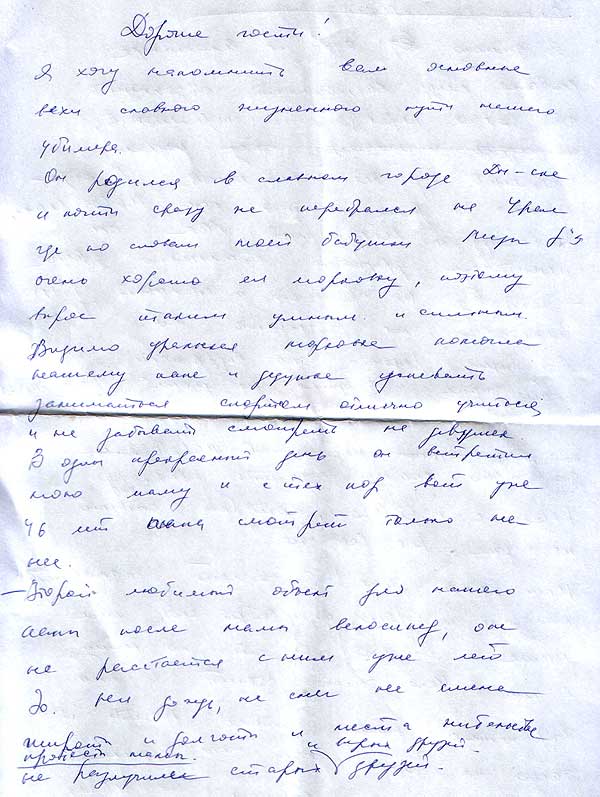 Дорогие гости!
Я хочу напомнить вам основные
вехи славного жизненного пути нашего
юбиляра.
Он родился в славном городе Дн-ске
и почти сразу же перебрался на Урал
где по словам моей бабушки
очень хорошо ел морковку, поэтому
вырос таким умным и сильным.
Видимо уральская морковка помогла
нашему папе и дедушке успевать
заниматься спортом отлично учиться
и не забывать смотреть на девушек
В один прекрасный день он встретил
мою маму и с тех пор вот уже
46 лет смотрит только на
нее.
– Второй любимый объект для нашего
папы после мамы велосипед, он
не расстается с ним уже лет
30. ни дождь, ни снег ни смена
широт и долготы и места жительства
и старых друзей.
не разлучили старых друзей.